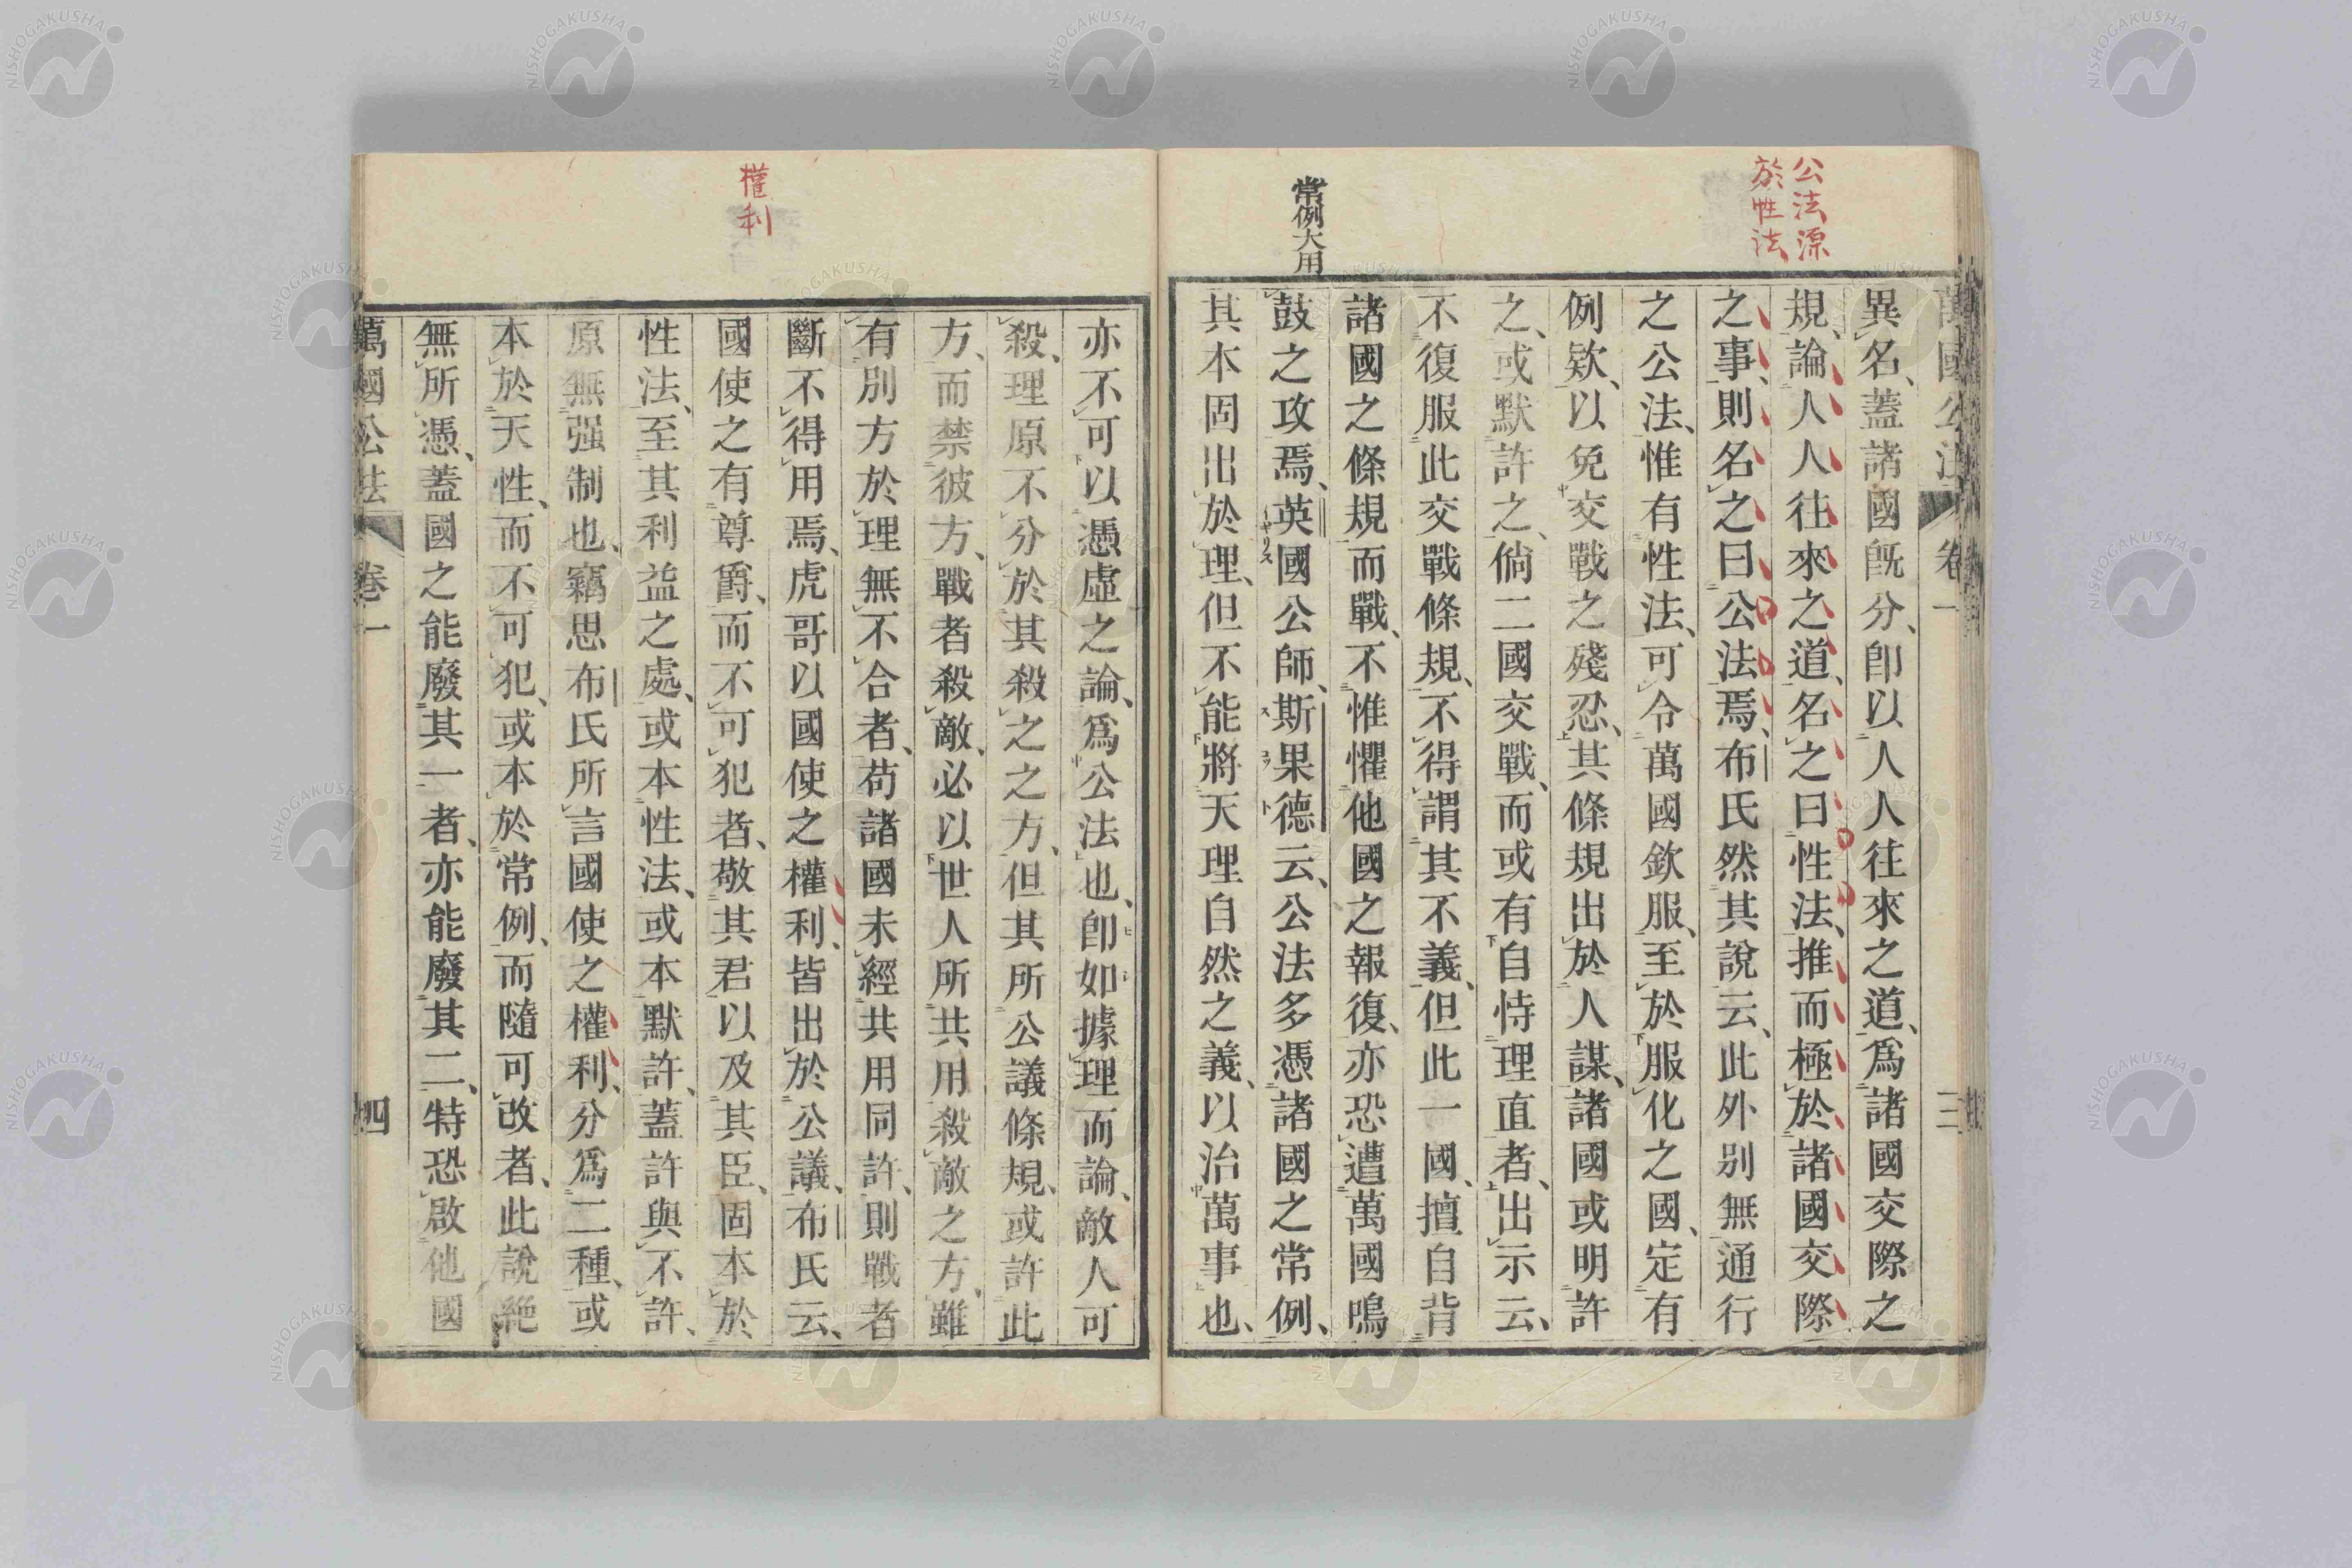 公法源
於性法
常例大用
萬國公法 卷一 三
異名、蓋諸國既分、卽以人人往來之道、爲諸國交際之
規、論人人往來之道、名之曰性法、推而極於諸國交際
之事、則名之曰公法焉、布氏然其說云、此外別無通行
之公法、惟有性法、可令萬國欽服、至於服化之國、定有
例欵、以免交戰之殘忍、其條規出於人謀、諸國或明許
之、或默許之、倘二國交戰、而或有自恃理直者、出示云、
不復服此交戰條規、不得謂其不義、但此一國、擅自背
諸國之條規而戰、不惟懼他國之報復、亦恐遭萬國鳴
鼓之攻焉、英國公師、斯果德云、公法多憑諸國之常例、
其本固出於理、但不能將天理自然之義、以治萬事也、
權利
亦不可以憑虛之論、爲公法也、卽如據理而論、敵人可
殺、理原不分於其殺之之方、但其所公議條規、或許此
方、而禁彼方、戰者殺敵、必以世人所共用殺敵之方、雖
有別方於理無不合者、苟諸國未經共用同許、則戰者
斷不得用焉、虎哥以國使之權利、皆出於公議、布氏云、
國使之有尊爵、而不可犯者、敬其君以及其臣、固本於
性法、至其利益之處、或本性法、或本默許、蓋許與不許、
原無强制也、竊思布氏所言國使之權利、分爲二種、或
本於天性、而不可犯、或本於常例、而隨可改者、此說絶
無所憑、蓋國之能廢其一者、亦能廢其二、特恐啟他國
萬國公法 卷一 四
NISHOGAKUSHA